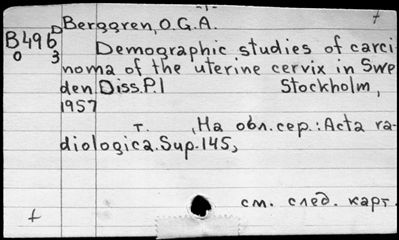 -1-
Berggren, O.G.A. +
B496 D
0 3
Demographic studies of carci
noma of the uterine cervix in Swe
den. Diss. P.1 Stockholm,
1957
т. , На обл. сер.: Acta ra-
diologica. Sup. 145,
см. след. карт.
+